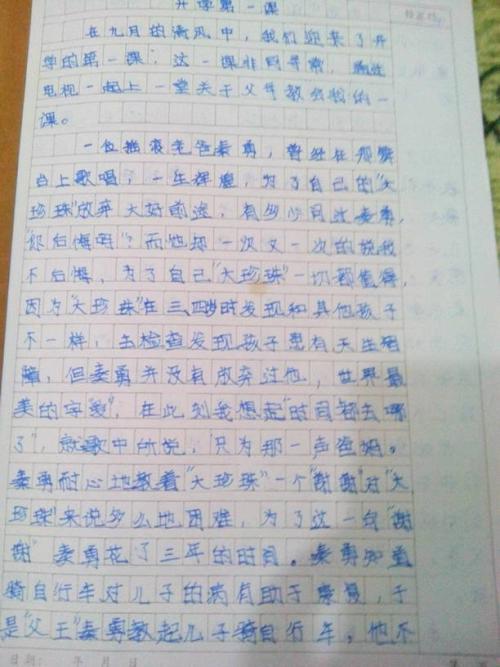 开学第一课
在九月的清风中，我们迎来了开
学的第一课：这一课非同寻常，通过
电视一起上一堂关于父母教给我的一
课。
一位摇滚老爸秦勇，曾经在那舞
台上歌唱，一生辉煌，为了自己的"大
珍珠"放弃大好前途，有多少问过秦勇，
"你后悔吗？"而他却一次又一次的说我
不后悔，为了自己"大珍珠"一切都值得，
因为"大珍珠"在三、四岁时发现和其他孩子
不一样，去检查发现孩子患有天生智
障，但秦勇并没有放弃过他，世界最
美的字"爱"，在此刻我想起"时间都去哪
了"，就歌中所说，"只为那一声爸妈。
秦勇耐心地教着"大珍珠"一个"谢谢"对"大
珍珠"来说多么地困难，为了这一句"谢
谢"秦勇花了三年的时间。秦勇知道
骑自行车对儿子的病有助于康复，于
是"父王"秦勇教起儿子骑自行车，他不
日期： 年 月 日